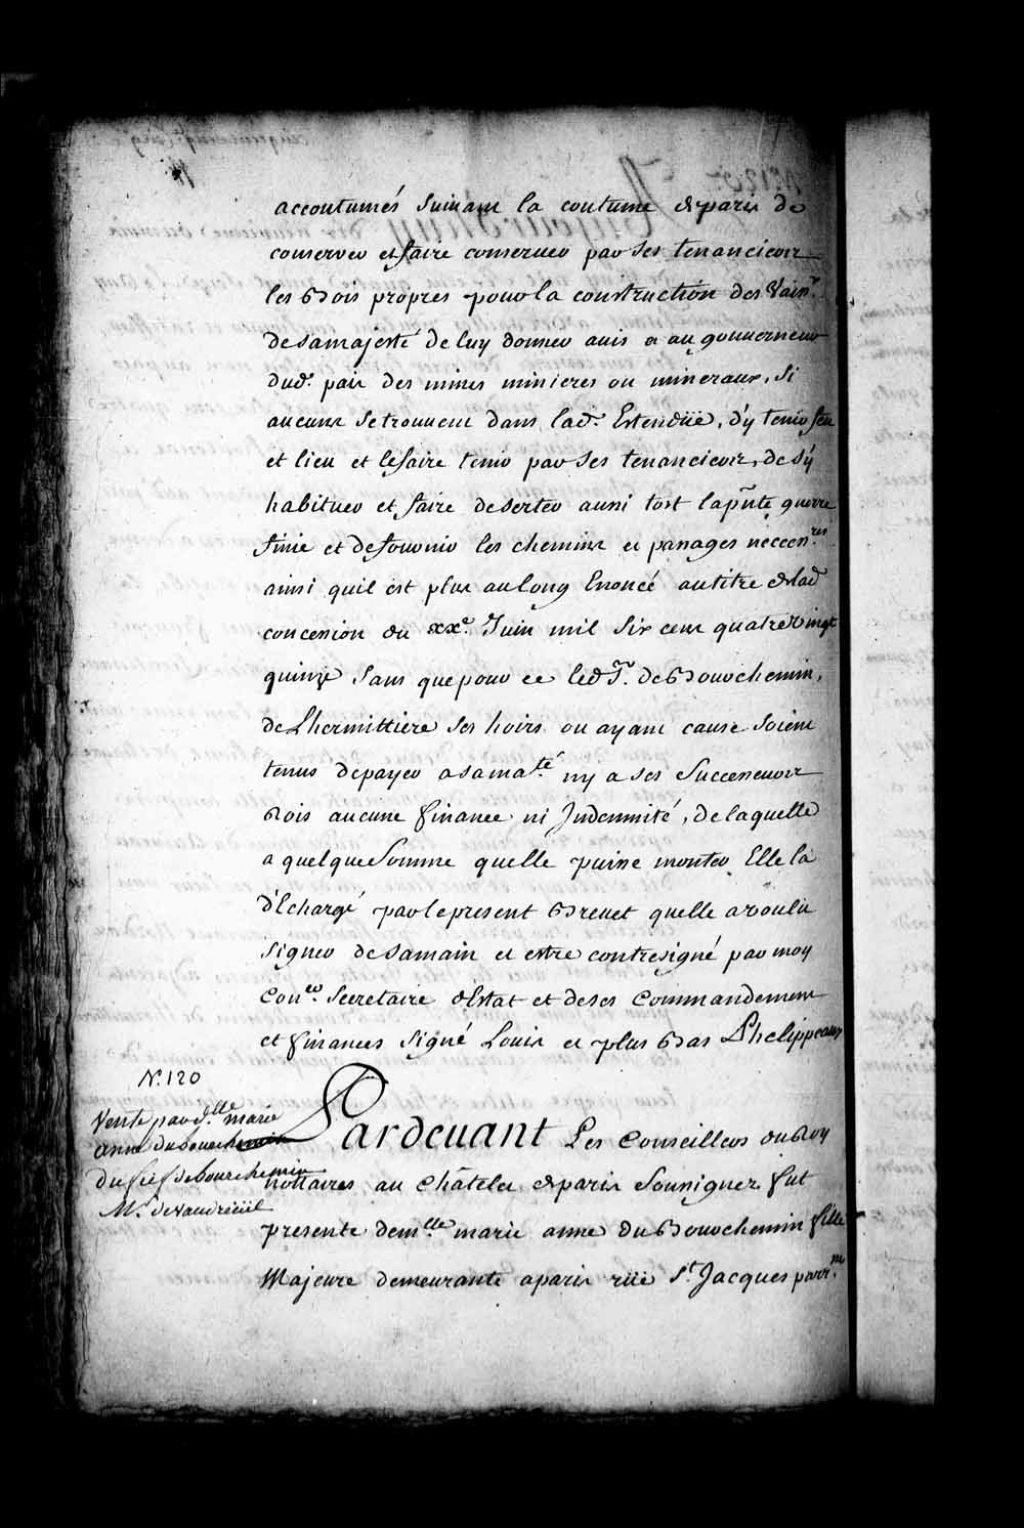 accoutumés suivant la coutume de paris de
conserver et faire conserver par ses tenanciers
les Bois propres pour la construction des Vaissx.
de sa majesté de luy donner avis ou au gouverneur
dud. pais des mines minieres ou mineraux, si
aucuns se trouvent dans lad. Estendüe, d'y tenir feu
et lieu et le faire tenir par ses tenanciers, de s'y
habituer et faire deserter aussi tost la pnte guerre
finie et de fournir les chemins et passages necessres
ainsi quil est plus au long Enoncé au titre de lad
concession du xxe. Juin mil six cent quatre vingt
quinze sans que pour ce led Sr. de Bourchemin,
de Lhermittiere ses hoirs ou ayant cause soient
tenus de payer a sa maté. ny a ses Successeurs
Rois aucune finance ni Indemnité, de laquelle
a quelque Somme quelle puisse monter Elle la
d'Echargé par le present Brevet quelle a voulu
signer de sa main et estre contresigné par moy
Coner. Secretaire d'Estat et de ses Commandemens
et finances Signé Louis et plus Bas Phelippeaux
N. 120
Vente par dlle. marie
anne du bourchemin
du fief de bourchemin
Mr. de Vaudreüil
Pardevant Les Conseillers du Roy
nottaires au Châtelet de paris Soussignez fut
presente demlle. marie anne du Bourchemin fille
Majeure demeurante a paris rüe St. Jacques parr.